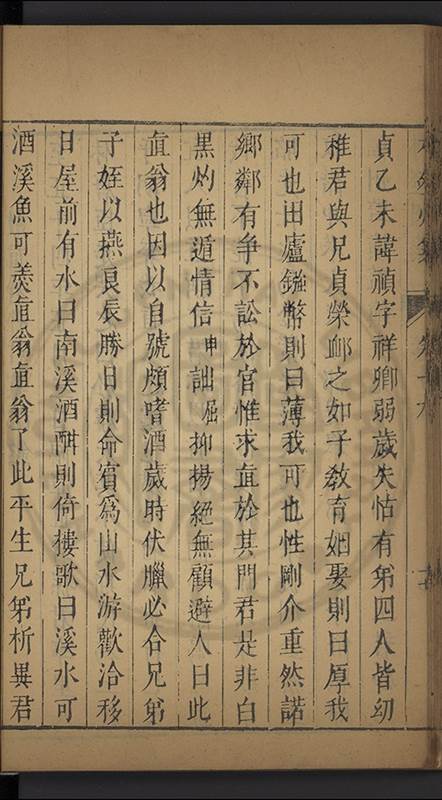 貞乙未諱禎字祥卿弱歲失怙有弟四人皆幼
稚君與兄貞榮邺之如子敎育姻娶則曰厚我
可也田廬鏹幣則曰薄我可也性剛介重然諾
鄉鄰有爭不訟於官惟求直於其門君是非白
黑灼無遁情信申詘屈抑揚絕無顧避人曰此
直翁也因以自號頗嗜酒歲時伏臘必合兄弟
子姪以燕良辰勝日則命賓爲山水游歡洽移
日屋前有水曰南溪酒酣則倚樓歌曰溪水可
酒溪魚可羮直翁直翁了此平生兄弟析異君